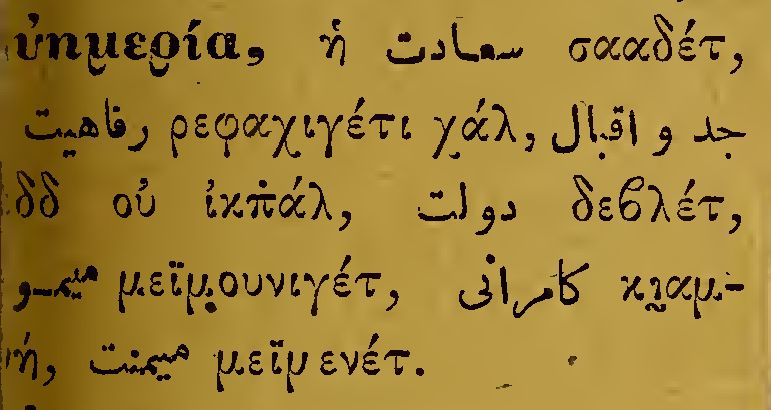 ὐημερία, ἡ سعادت σααδέτ,
رفاهيت ρεφαχιγέτι χάλ, جد و اقبال
δδ οὐ ἰκπάλ, دولت δεβλέτ,
μεϊμουνιγέτ, كامرانى κιαμ-
ή, ميمنت μεϊμενέτ.